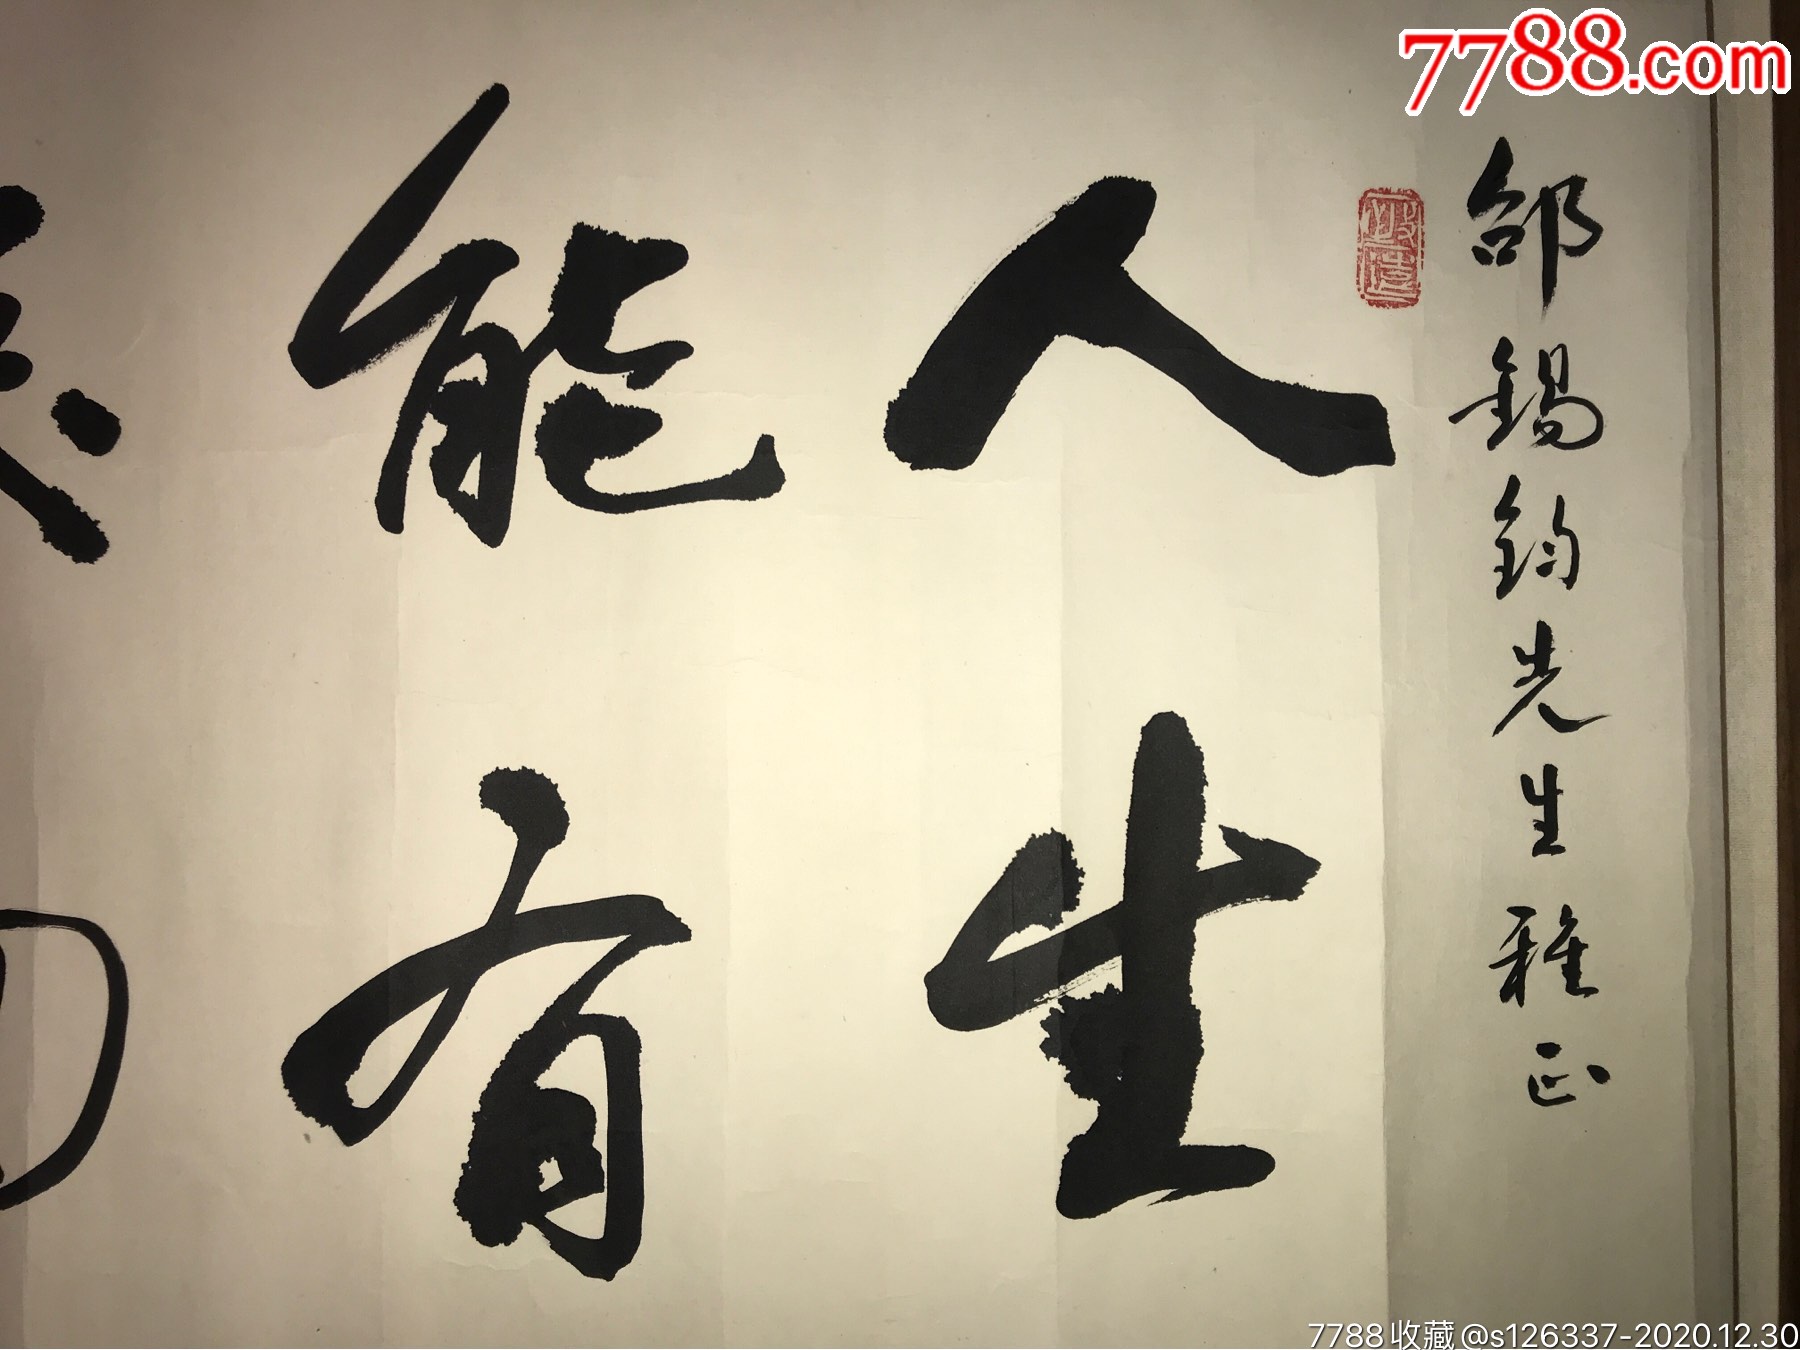 7788.com
邰錫鈞先生雅正
人生
能有
7788收藏@s126337-2020.12.30